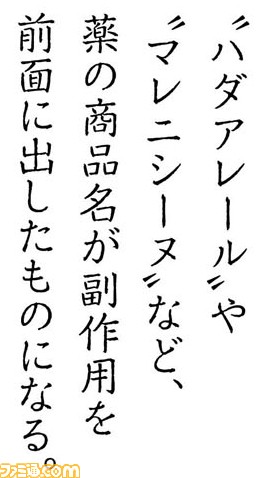 〝ハダアレール〟や
〝マレニシーヌ〟など、
薬の商品名が副作用を
前面に出したものになる。
ファミ通.com